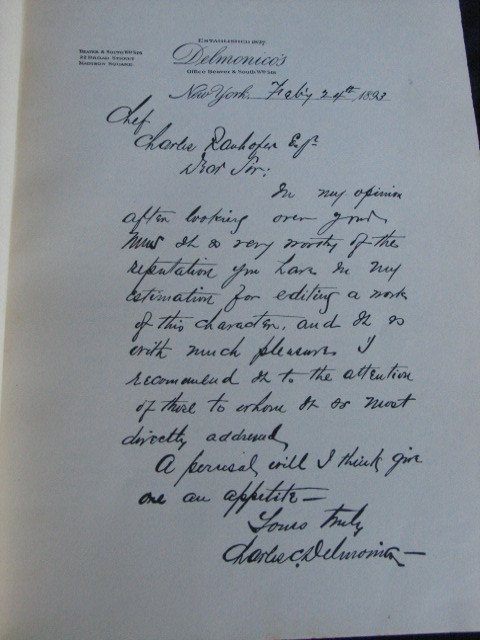 ESTABLISHED 1827
Delmonico's
Office Beaver & South Wm Sts.
BEAVER & SOUTH WM STS
22 BROAD STREET
MADISON SQUARE
New York, Feb'y 24th 1893
Chef
Charles Ranhofer Esq.
Dear Sir:
In my opinion
after looking over your
it is very worthy of the
reputation you have in my
estimation for editing a work
of this character, and it is
with much pleasure I
recommend it to the attention
of those to whom it is most
directly addressed,
A perusal, will I think give
one an appetite —
Yours truly
Charles C. Delmonico —